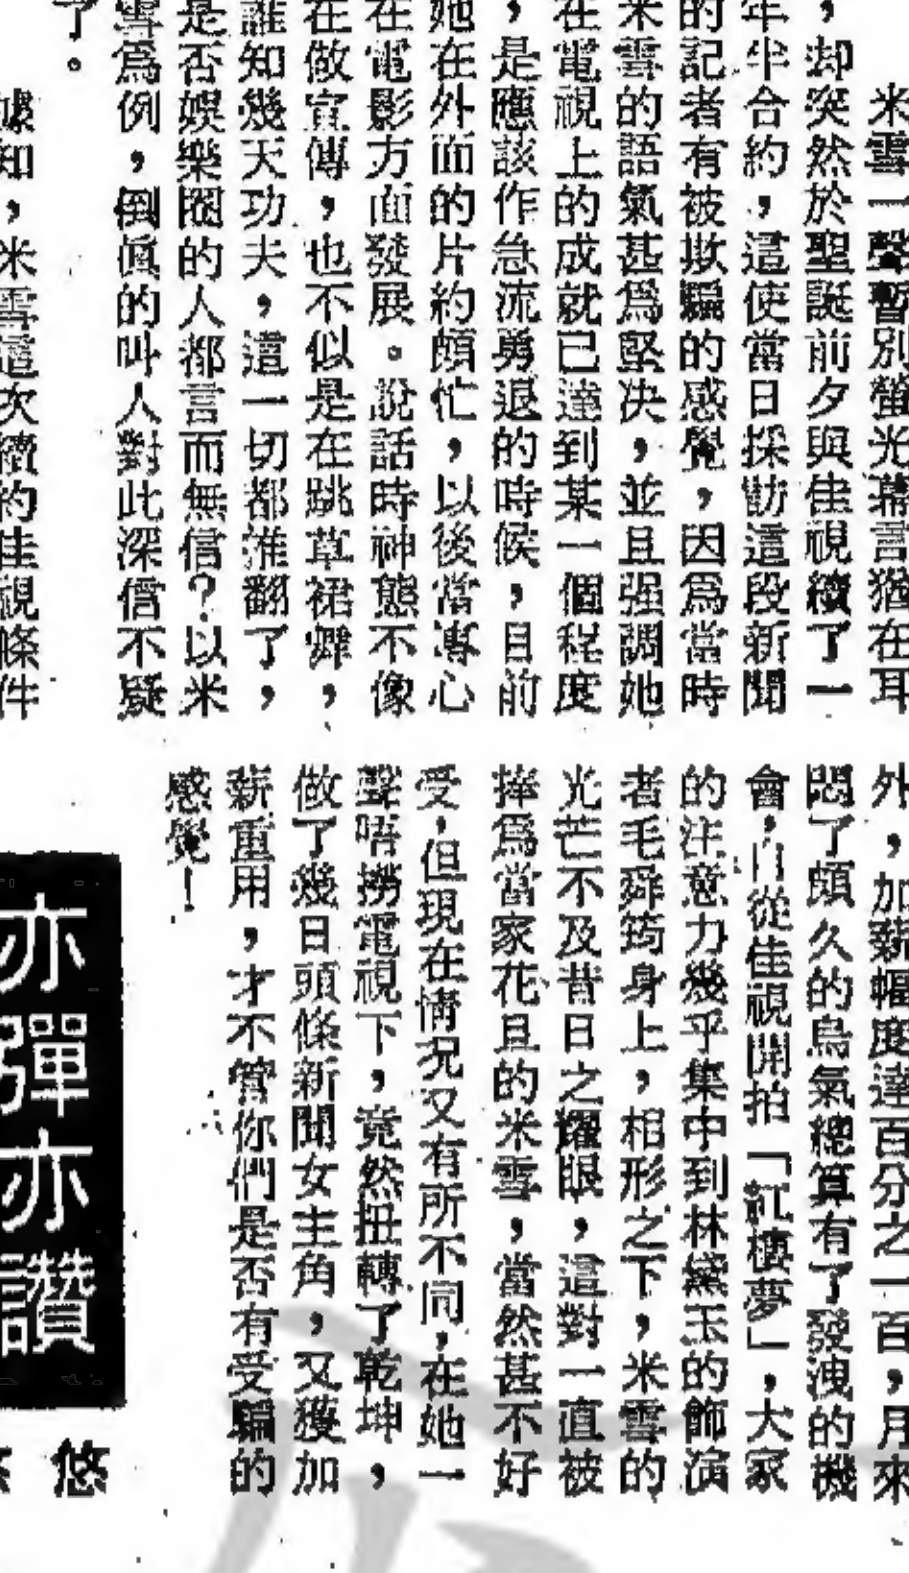 米雪一聲暫別螢光幕言猶在耳
，却突然於聖誕前夕與佳視續了一
年半合約，這使當日採訪這段新聞
的記者有被欺騙的感覺，因爲當時
米雪的語氣甚爲堅决，並且强調她
在電視上的成就已達到某一個程度
，是應該作急流勇退的時候，目前
她在外面的片約頗忙，以後當專心
在電影方面發展。說話時神態不像
在做宣傳，也不似是在跳草裙舞，
誰知幾天功夫，這一切都推翻了，
是否娛樂圈的人都言而無信？以米
雪爲例，倒眞的叫人對此深信不疑
了。
據知，米雪這次續約佳視條件
外，加薪幅度達百分之一百，月來
悶了頗久的烏氣總算有了發洩的機
會，自從佳視開拍「紅樓夢」，大家
的注意力幾乎集中到林黛玉的飾演
者毛舜筠身上，相形之下，米雪的
光芒不及昔日之耀眼，這對一直被
捧爲當家花旦的米雪，當然甚不好
受，但現在情况又有所不同，在她一
聲唔撈電視下，竟然扭轉了乾坤，
做了幾日頭條新聞女主角，又獲加
薪重用，才不管你們是否有受騙的
感覺！
亦彈亦讚
悠